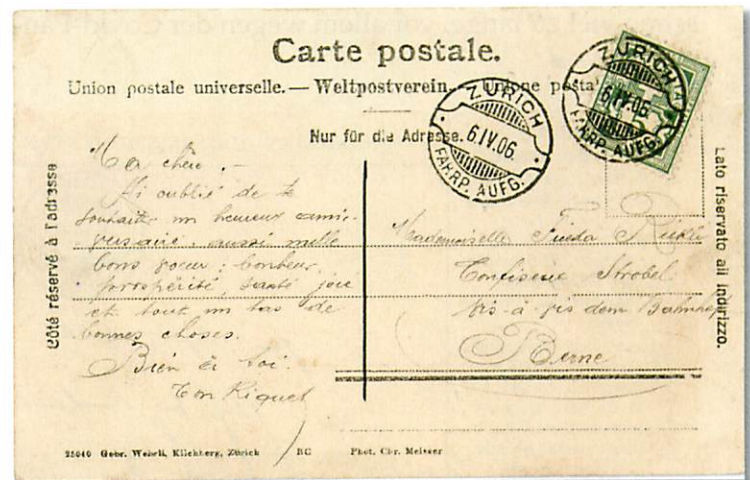 Carte postale.
Union postale universelle. — Weltpostverein. — Unione posta
Nur für die Adresse.
ZÜRICH
6.IV.06.
FAHRP. AUFG.
ZÜRICH
6.IV.06
FAHRP. AUFG.
Côté réservé à l'adresse
Lato riservato all indirizzo.
Ma chère. —
Ai oublié de te
souhaiter un heureux anni-
versaire, aussi mille
bons vœux: bonheur,
prospérité, santé, joie
et tout un tas de
bonnes choses.
Bien à toi.
Ton Riquet
Mademoiselle Frieda
Confiserie Strobel
vis-à-vis dem Bahnhof
Berne
25040 Gebr. Wehrli, Kilchberg, Zürich
BC
Phot. Chr. Meisser